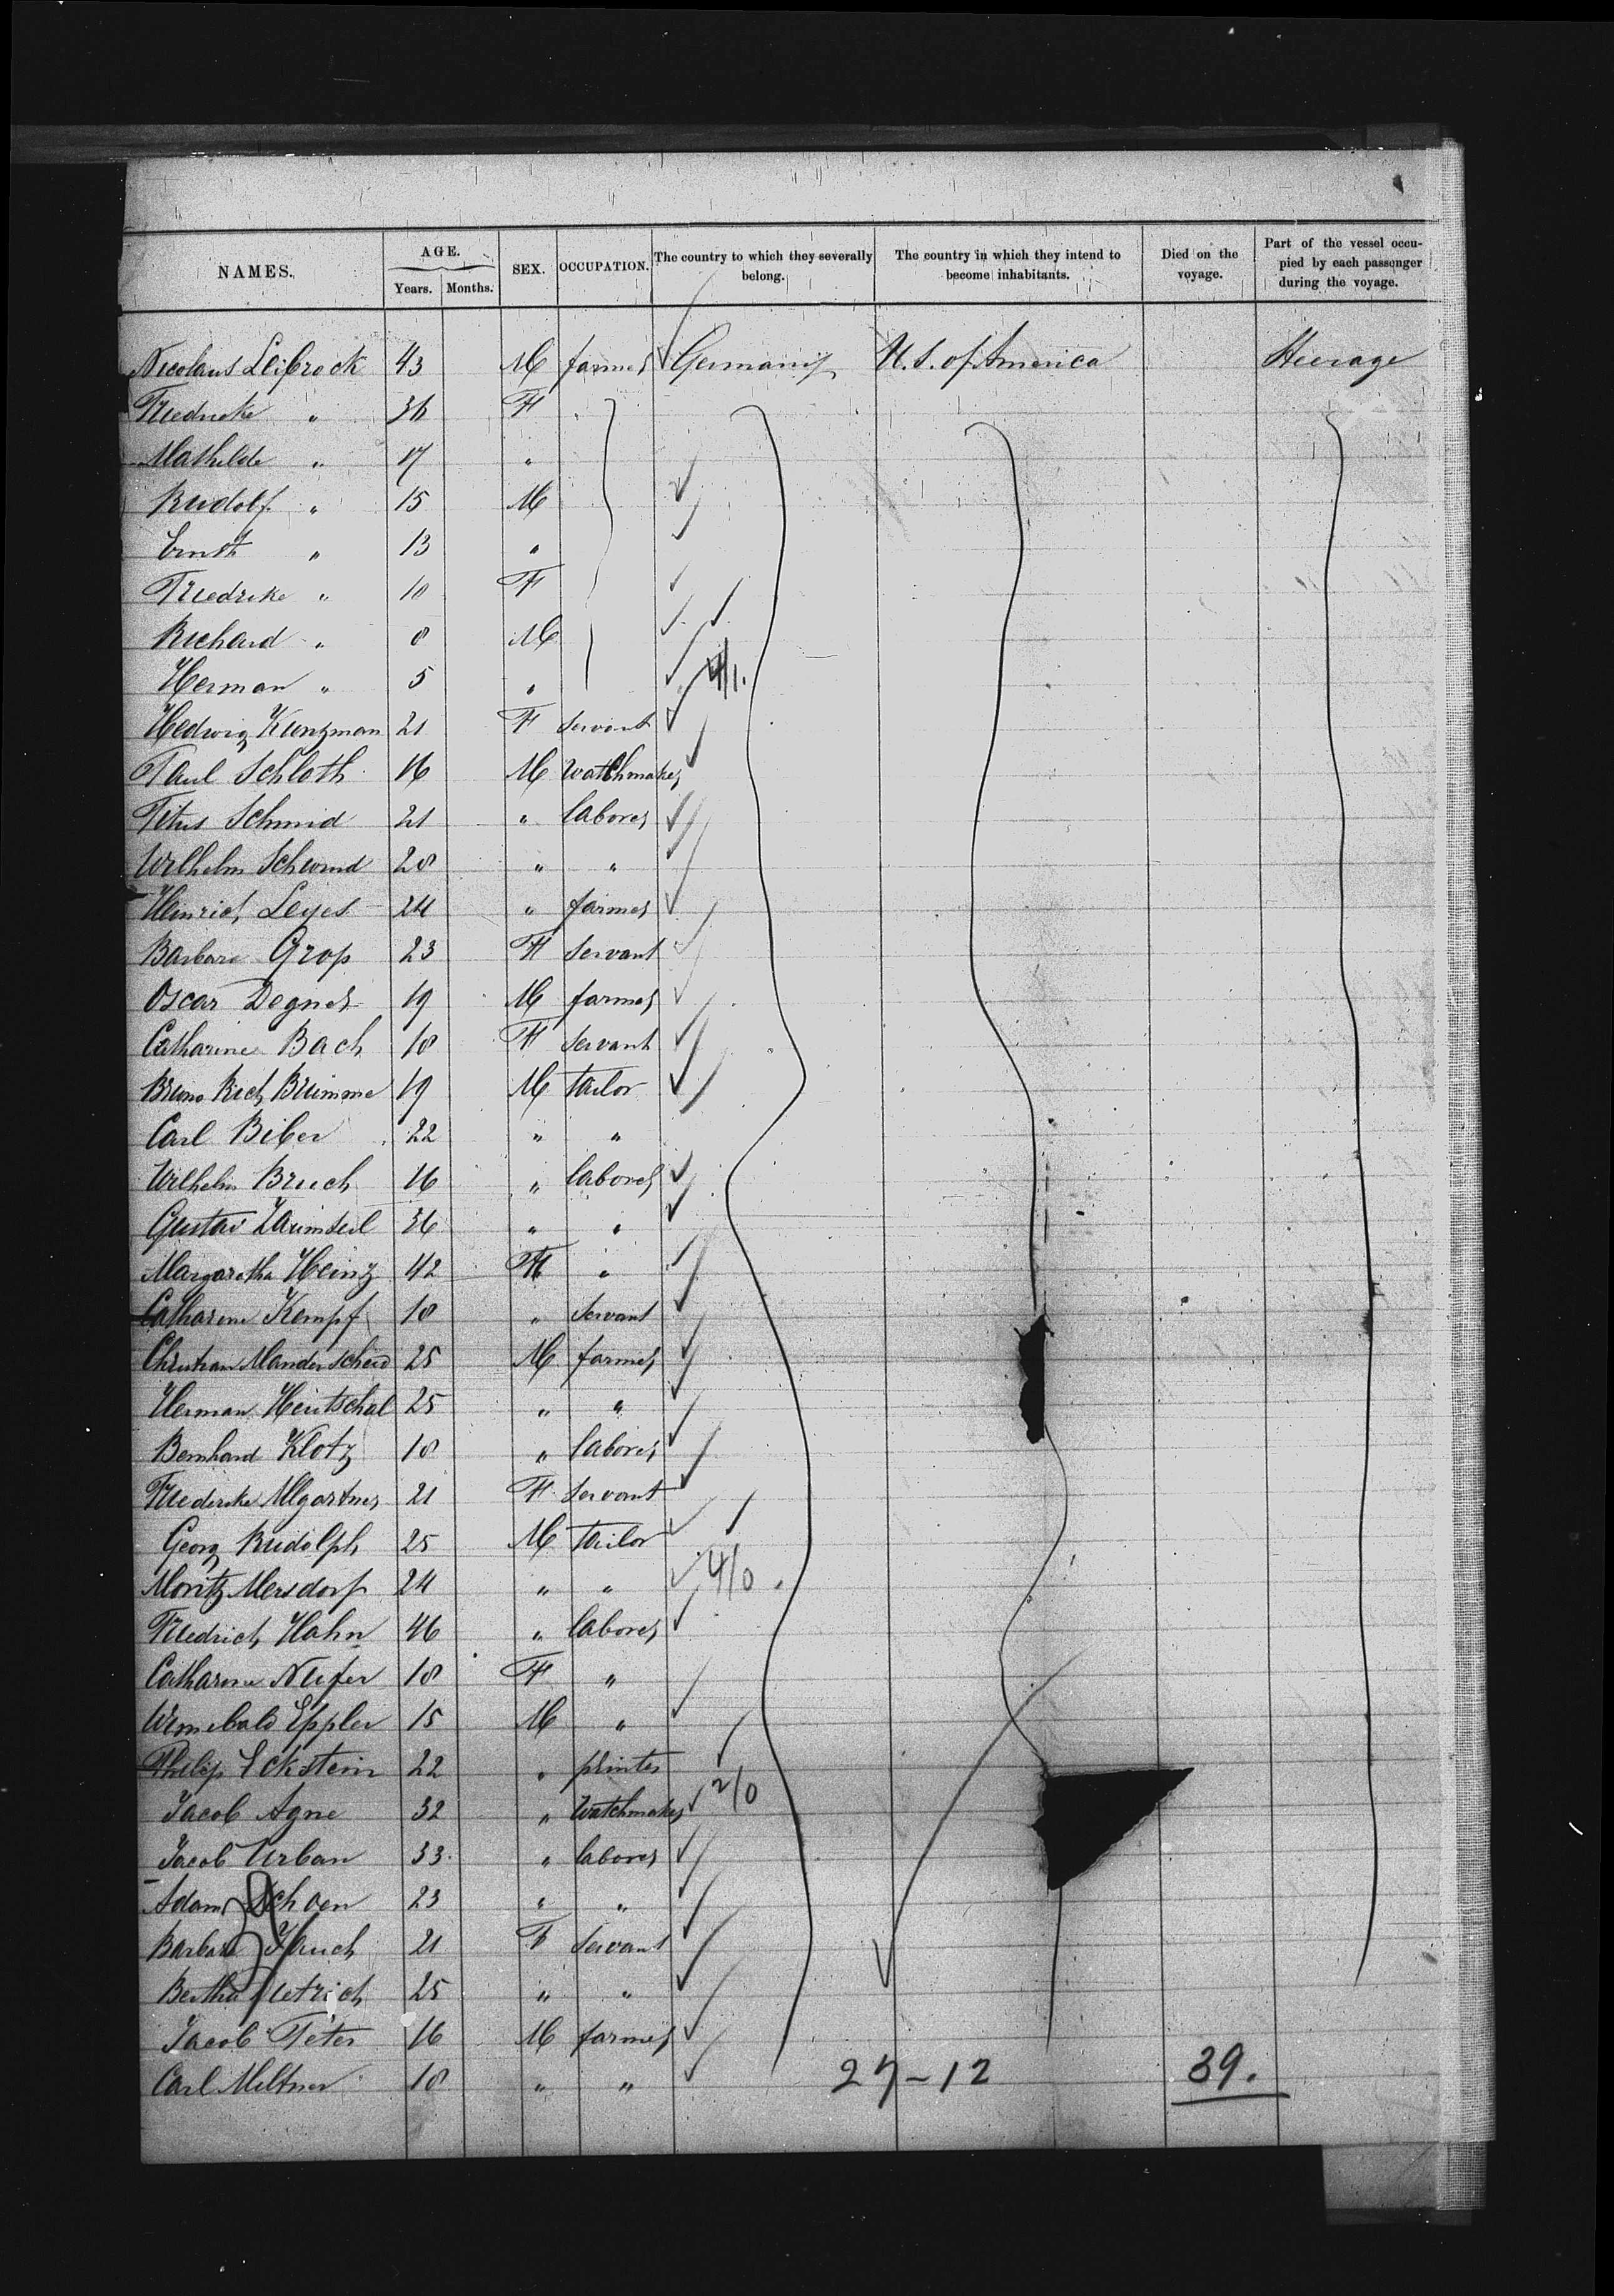 NAMES. AGE. Years. Months. SEX. OCCUPATION. The country to which they severally belong. The country in which they intend to become inhabitants. Died on the voyage. Part of the vessel occupied by each passenger during the voyage.
Nicolaus Leibrock 43 M farmer Germany U.S. of America Steerage
Friedricke " 36 F
Mathilde " 17 "
Rudolf " 15 M
Ernst " 13 "
Friedrike " 10 F
Richard " 8 M
Herman " 5 " 4/1.
Hedwig Kunzman 21 F servant
Paul Schloth 16 M Watchmaker
Titus Schmid 21 " laborer
Wilhelm Schwind 28 " "
Heinrich Leyes 24 " farmer
Barbara Grop 23 F servant
Oscar Degner 19 M farmer
Catharine Bach 18 F servant
Bruno Rich Brumme 19 M tailor
Carl Biber 22 " "
Wilhelm Bruch 16 " laborer
Gustav 36 " "
Margaretha Heinz 42 F "
Catharine Kempf 18 " servant
Christian Manderscheid 25 M farmer
Herman Hentschel 25 " "
Bernhard Klotz 18 " laborer
Friederike 21 F servant
Georg Rudolph 25 M tailor
Moritz Mersdorf 24 " " 4/0
Friedrich Hahn 46 " laborer
Catharine Neifer 18 F "
Eppler 15 M "
Philip Eckstein 22 " printer
Jacob Agne 32 " Watchmaker 2/0
Jacob Urban 33 " laborer
Adam Schoen 23 " "
Barbara Hauch 21 F servant
Bertha 25 " "
Jacob Peter 16 M farmer
Carl Meltner 18 " " 27-12 39.
39